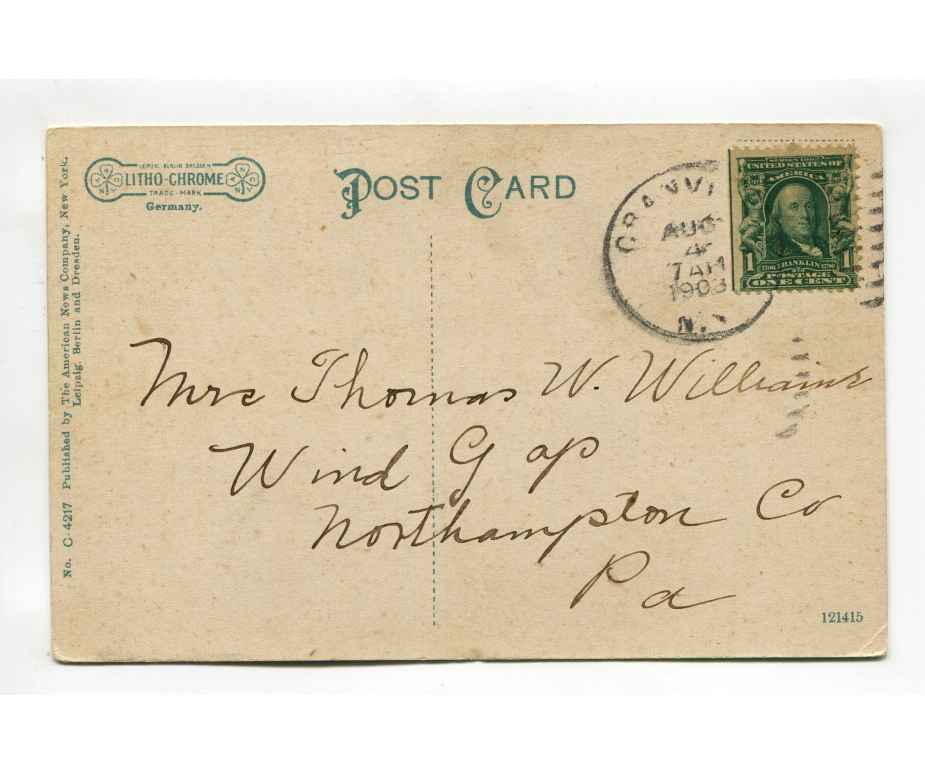 LEIPZIG BERLIN DRESDEN
LITHO-CHROME
TRADE-MARK
Germany.
POST CARD
GRANVI
AUG
4
7 AM
1908
N.Y.
SERIES 1902
UNITED STATES OF
AMERICA
1 FRANKLIN 1
POSTAGE
ONE CENT
No. C-4217 Published by The American News Company, New York.
Leipzig, Berlin and Dresden.
Mrs Thomas W. Williams
Wind Gap
Northampton Co
Pa
121415